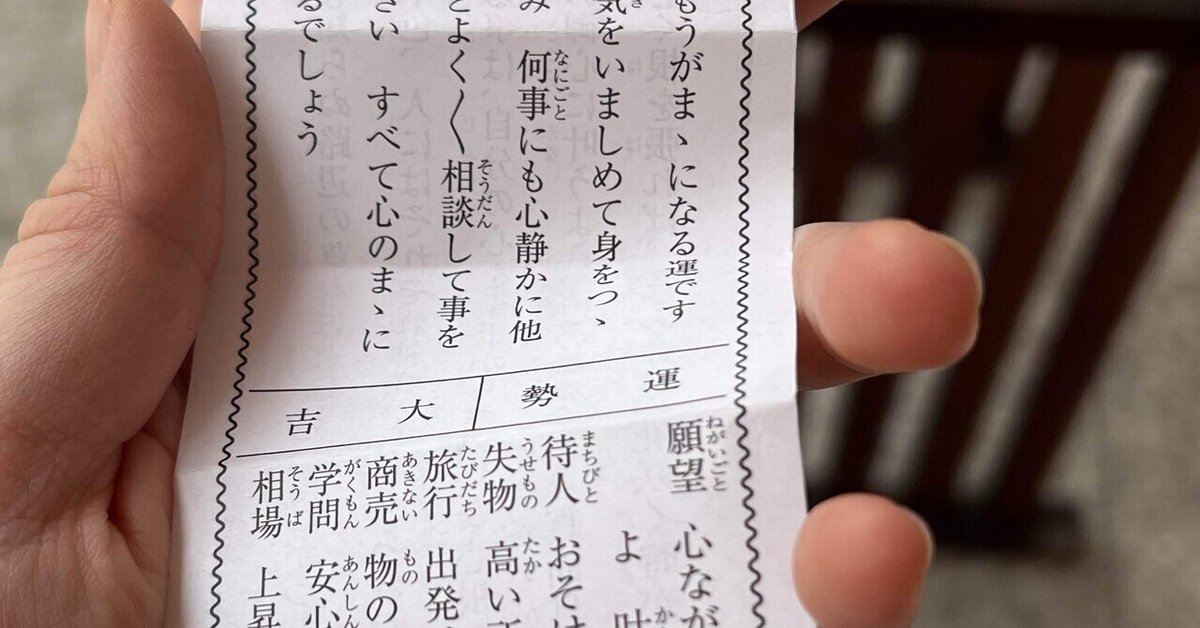 もうがまゝになる運です
気をいましめて身をつゝ
み 何事にも心静かに他
とよく〳〵相談して事を
さい すべて心のまゝに
るでしょう
運勢 大吉
願望 心なが
よ 叶
待人 おそけ
失物 高い
旅行 出発
商売 物の
学問 安心
相場 上昇